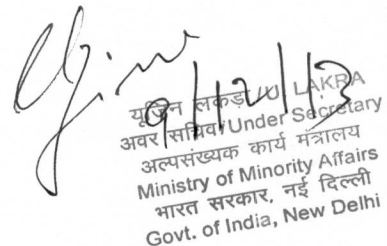 9/12/13
यूजिन लकड़ा/U LAKRA
अवर सचिव/Under Secretary
अल्पसंख्यक कार्य मंत्रालय
Ministry of Minority Affairs
भारत सरकार, नई दिल्ली
Govt. of India, New Delhi